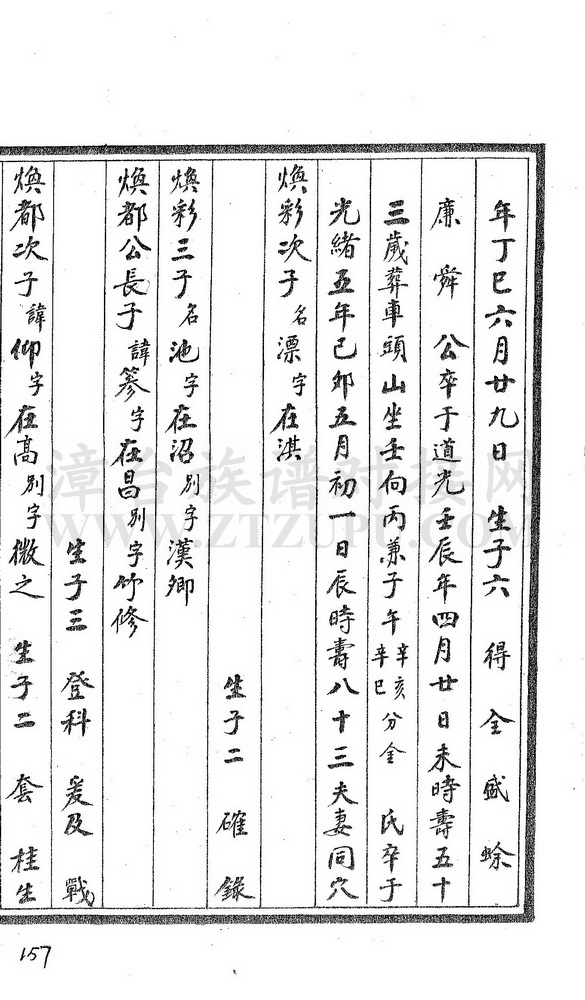 年丁巳六月廿九日 生子六 得 全 盛 蜍
廉 舜 公卒于道光壬辰年四月廿日未時壽五十
三歲葬車頭山坐壬向丙兼子午 辛亥 辛巳 分金 氏卒于
光緒五年己卯五月初一日辰時壽八十三夫妻同穴
煥彩次子名漂字在淇
生子二 確 錄
煥彩三子名池字在沼別字漢卿
煥都公長子諱篸字在昌別字竹修
生子三 登科 爰及 戰
煥都次子諱仰字在高別字微之 生子二 套 桂生
漳台族谱对接网
WWW.ZTZUPU.COM
157